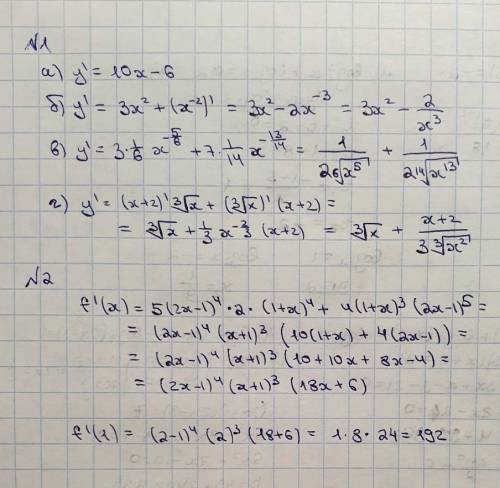 №1
а) y' = 10x - 6
б) y' = 3x² + (x⁻²)' = 3x² - 2x⁻³ = 3x² - 2/x³
в) y' = 3·1/6 x^(-5/6) + 7·1/14 x^(-13/14) = 1/(2⁶√x⁵) + 1/(2¹⁴√x¹³)
г) y' = (x+2)' ³√x + (³√x)' (x+2) =
= ³√x + 1/3 x^(-2/3) (x+2) = ³√x + (x+2)/(3 ³√x²)
№2
f'(x) = 5(2x-1)⁴·2·(1+x)⁴ + 4(1+x)³ (2x-1)⁵ =
= (2x-1)⁴ (x+1)³ (10(1+x) + 4(2x-1)) =
= (2x-1)⁴ (x+1)³ (10+10x+8x-4) =
= (2x-1)⁴ (x+1)³ (18x+6)
f'(1) = (2-1)⁴ (2)³ (18+6) = 1·8·24 = 192